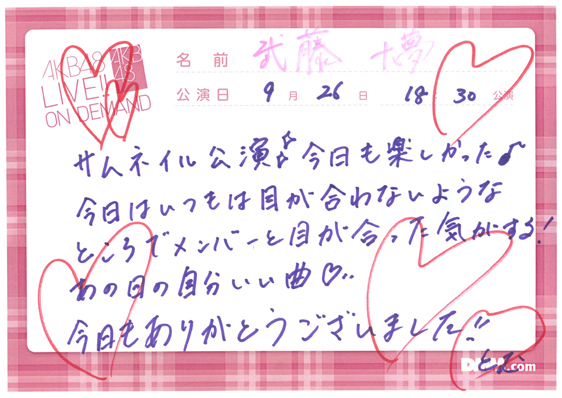 AKB48
LIVE!!
ON DEMAND
AKB
48
名前 武藤 十夢
公演日 9月 26日 18:30 公演
サムネイル公演♪今日も楽しかった♪
今日はいつもは目が合わないような
ところでメンバーと目が合った気がする!
あの日の自分いい曲♡‥
今日もありがとうございました!!
とむ
DMM.com